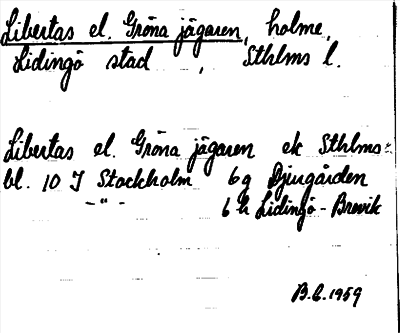 Libertas el. Gröna jägaren, holme,
Lidingö stad , Sthlms l.
Libertas el. Gröna jägaren ek Sthlms-
bl. 10 I Stockholm 6 g Djurgården
-"- 6 h Lidingö-Brevik
B.C. 1959